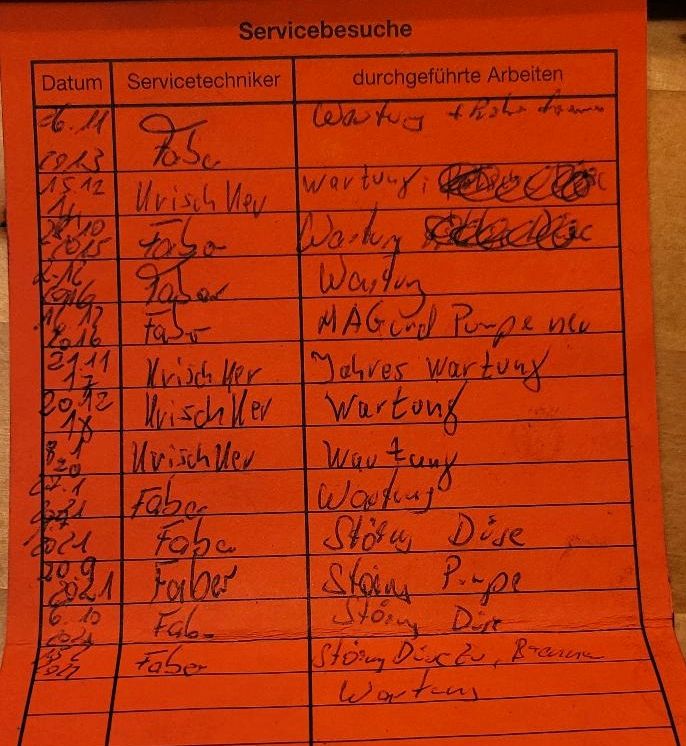 Servicebesuche
Datum Servicetechniker durchgeführte Arbeiten
26.11 2013 Faber Wartung +
15.12 14 Krischker Wartung,
10 2015 Faber Wartung
2016 Faber Wartung
12 2016 Faber MAG und Pumpe neu
21.11 17 Krischker Jahres Wartung
20.12 18 Krischker Wartung
8.1 20 Krischker Wartung
27.1 2021 Faber Wartung
2021 Faber Störung Düse
20.9 2021 Faber Störung Pumpe
6.10 2021 Faber Störung Düse
Faber Störung Düse zu, Brenner
Wartung